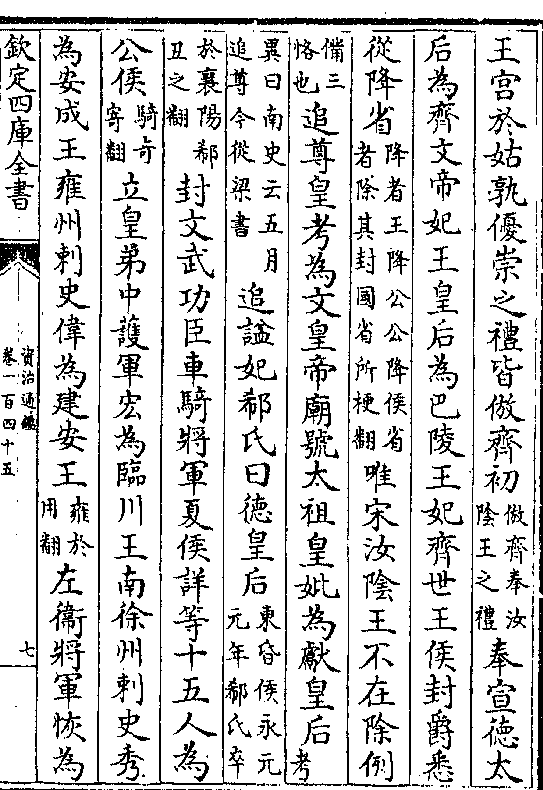 王宫於姑孰優崇之禮皆倣齊初倣齊奉汝隂王之禮奉宣德太
后為齊文帝妃王皇后為巴陵王妃齊世王侯封爵悉
從降省降者王降公公降侯省者除其封國省所梗翻唯宋汝隂王不在除例
備三恪也追尊皇考為文皇帝廟號太祖皇妣為獻皇后考
異曰南史云五月追尊今從梁書追諡妃郗氏曰德皇后東昏侯永元元年郗氏卒
於襄陽郗丑之翻封文武功臣車騎將軍夏侯詳等十五人為
公侯騎奇寄翻立皇弟中䕶軍宏為臨川王南徐州刺史秀
為安成王雍州刺史偉為建安王雍於用翻左衞將軍恢為
欽定四庫全書
資治通鑑
卷一百四十五
七